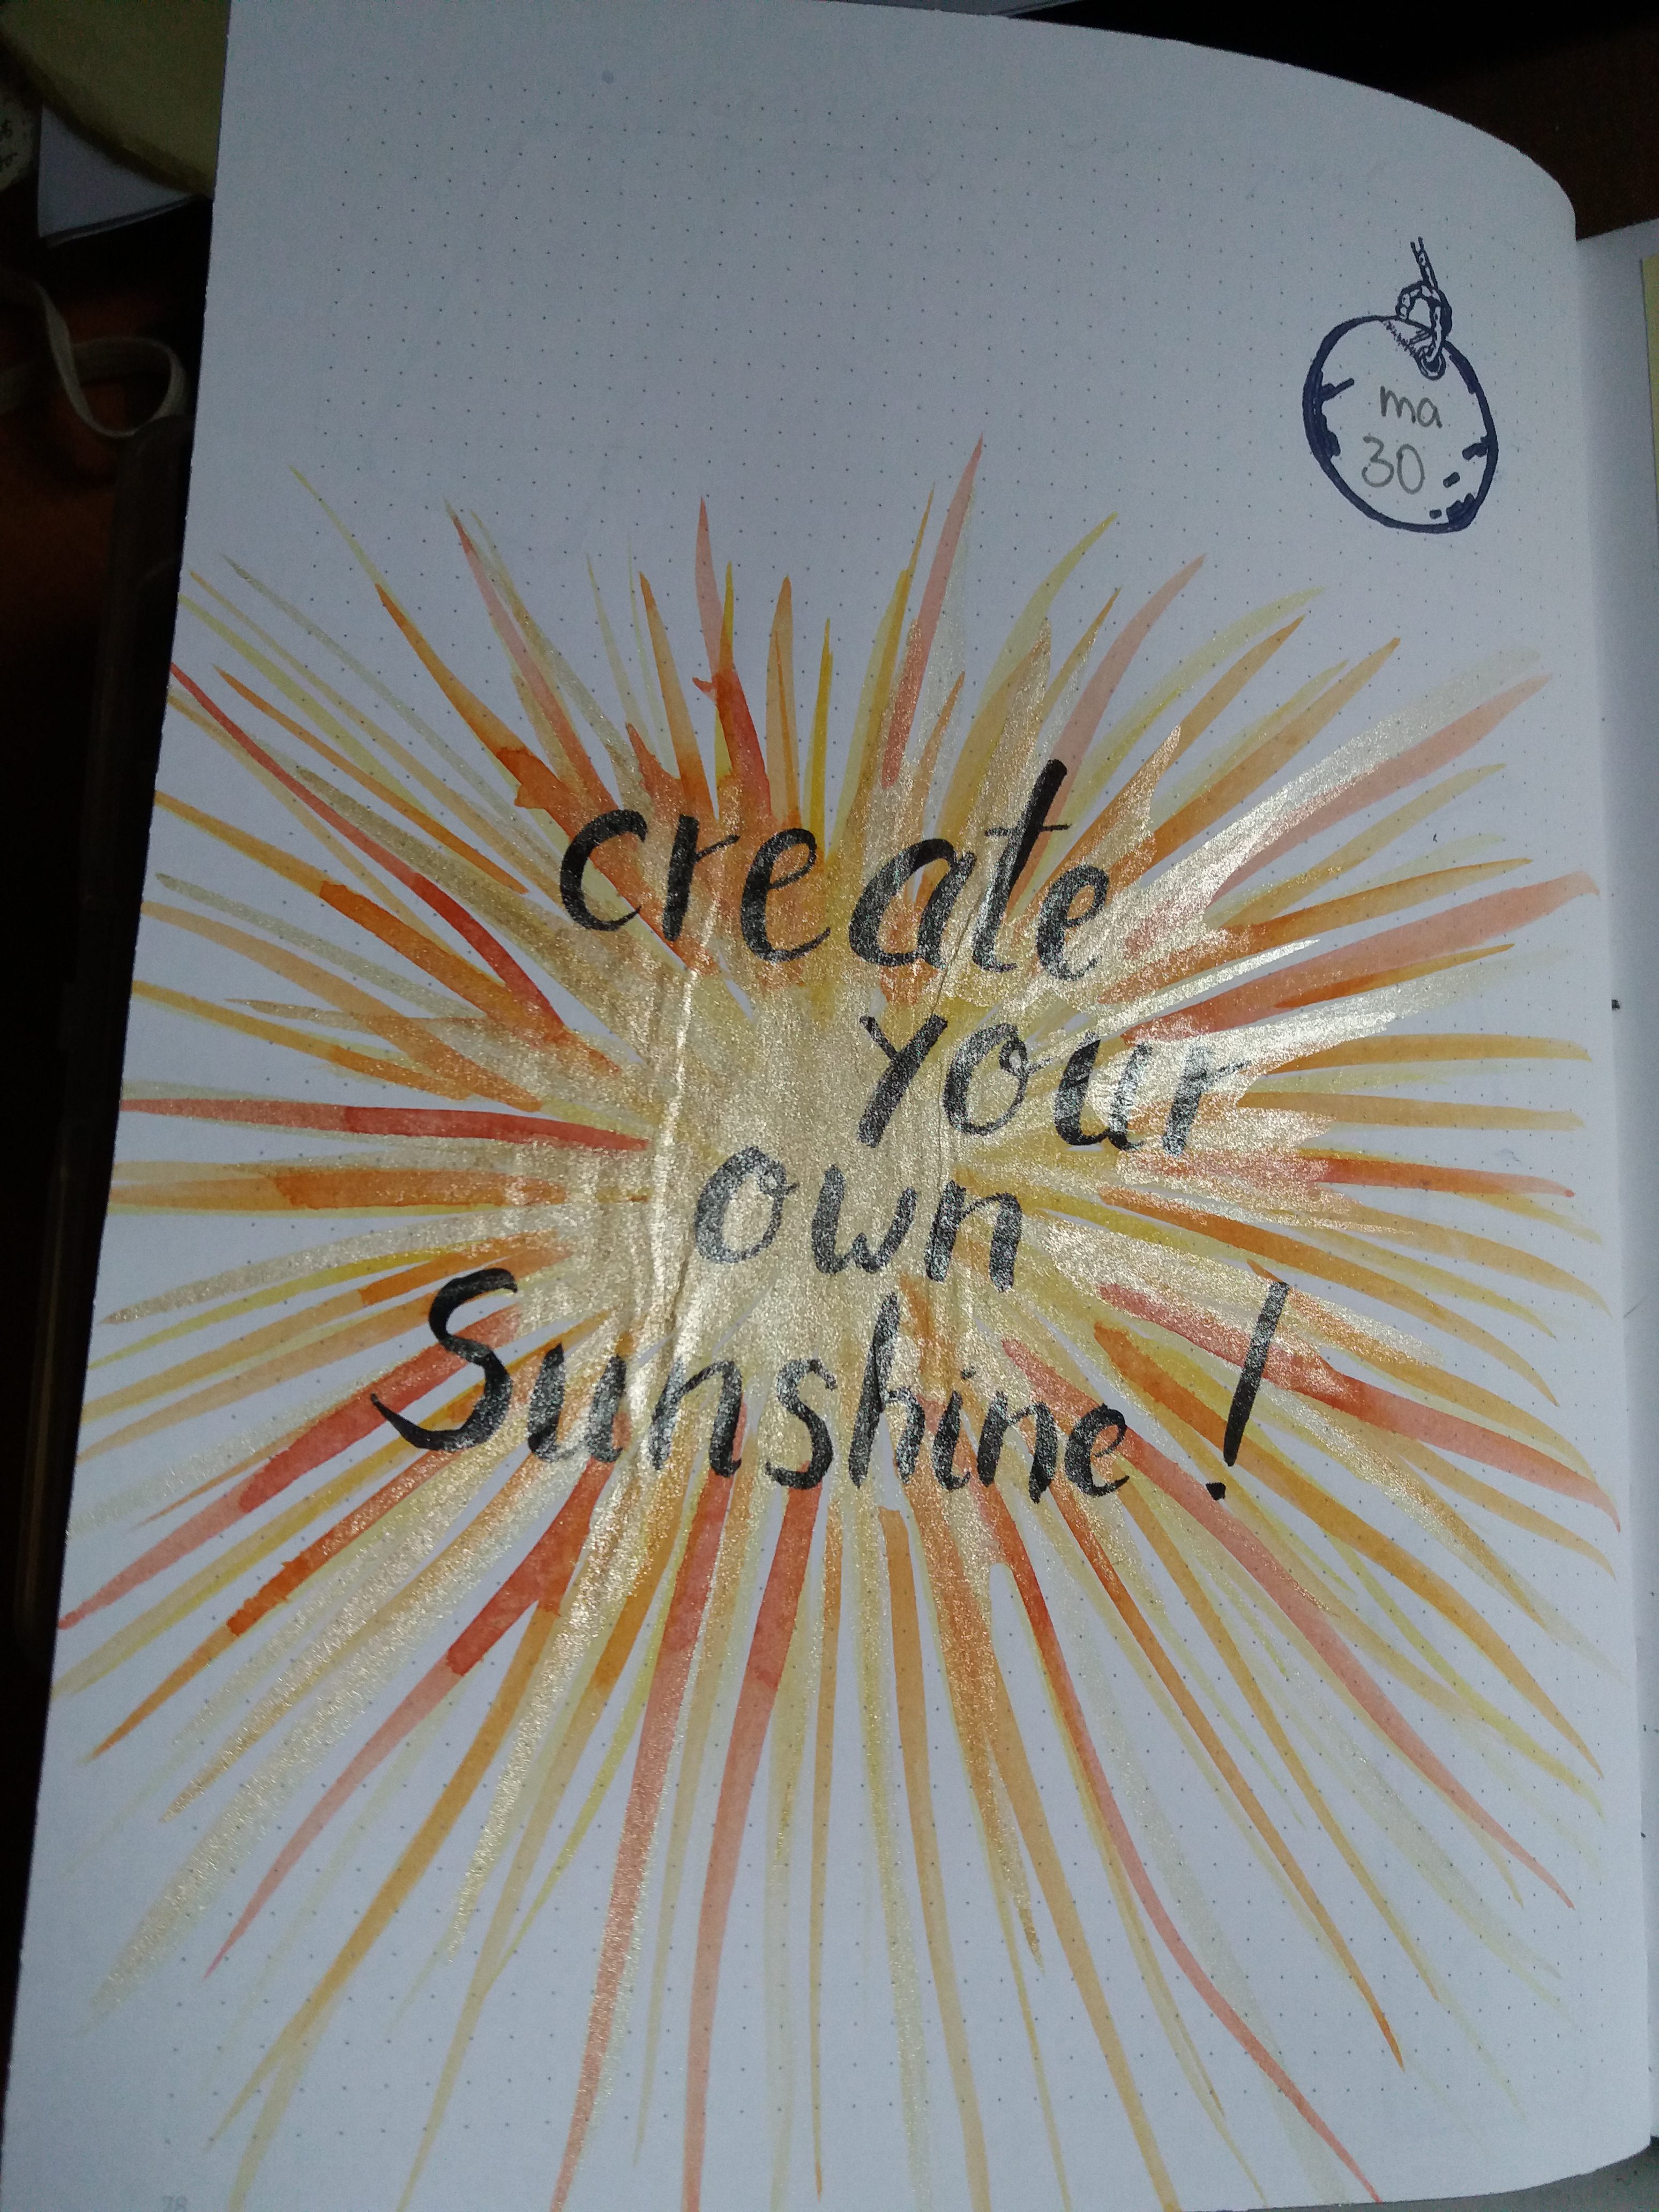 ma
30
create
your
own
Sunshine!
78